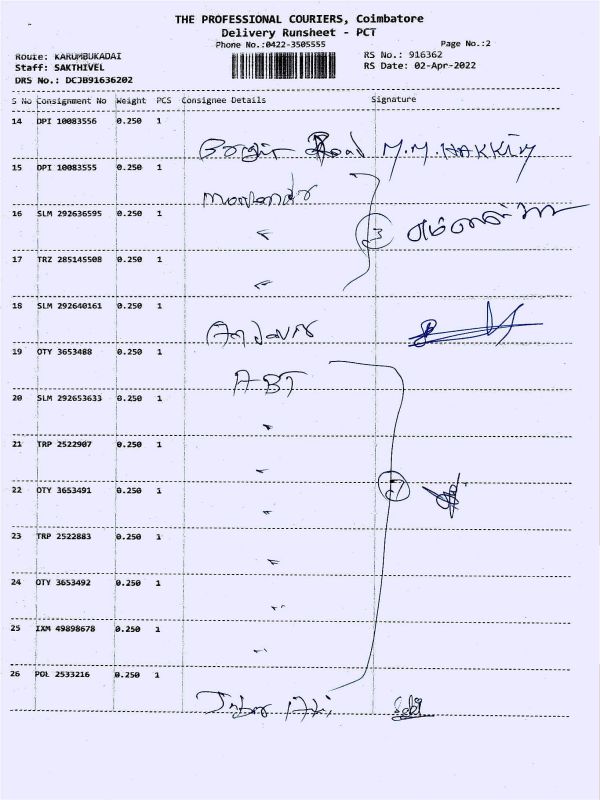 THE PROFESSIONAL COURIERS, Coimbatore
Delivery Runsheet - PCT
Phone No.:0422-3505555
Page No.:2
Route: KARUMBUKADAI
Staff: SAKTHIVEL
DRS No.: DCJB91636202
RS No.: 916362
RS Date: 02-Apr-2022
S No Consignment No Weight PCS Consignee Details Signature
14 DPI 10083556 0.250 1
M.M.HAKKIM
15 DPI 10083555 0.250 1
16 SLM 292636595 0.250 1
3
17 TRZ 285145508 0.250 1
18 SLM 292640161 0.250 1
19 OTY 3653488 0.250 1
ABT
20 SLM 292653633 0.250 1
21 TRP 2522907 0.250 1
22 OTY 3653491 0.250 1
7
23 TRP 2522883 0.250 1
24 OTY 3653492 0.250 1
25 IXM 49898678 0.250 1
26 POL 2533216 0.250 1